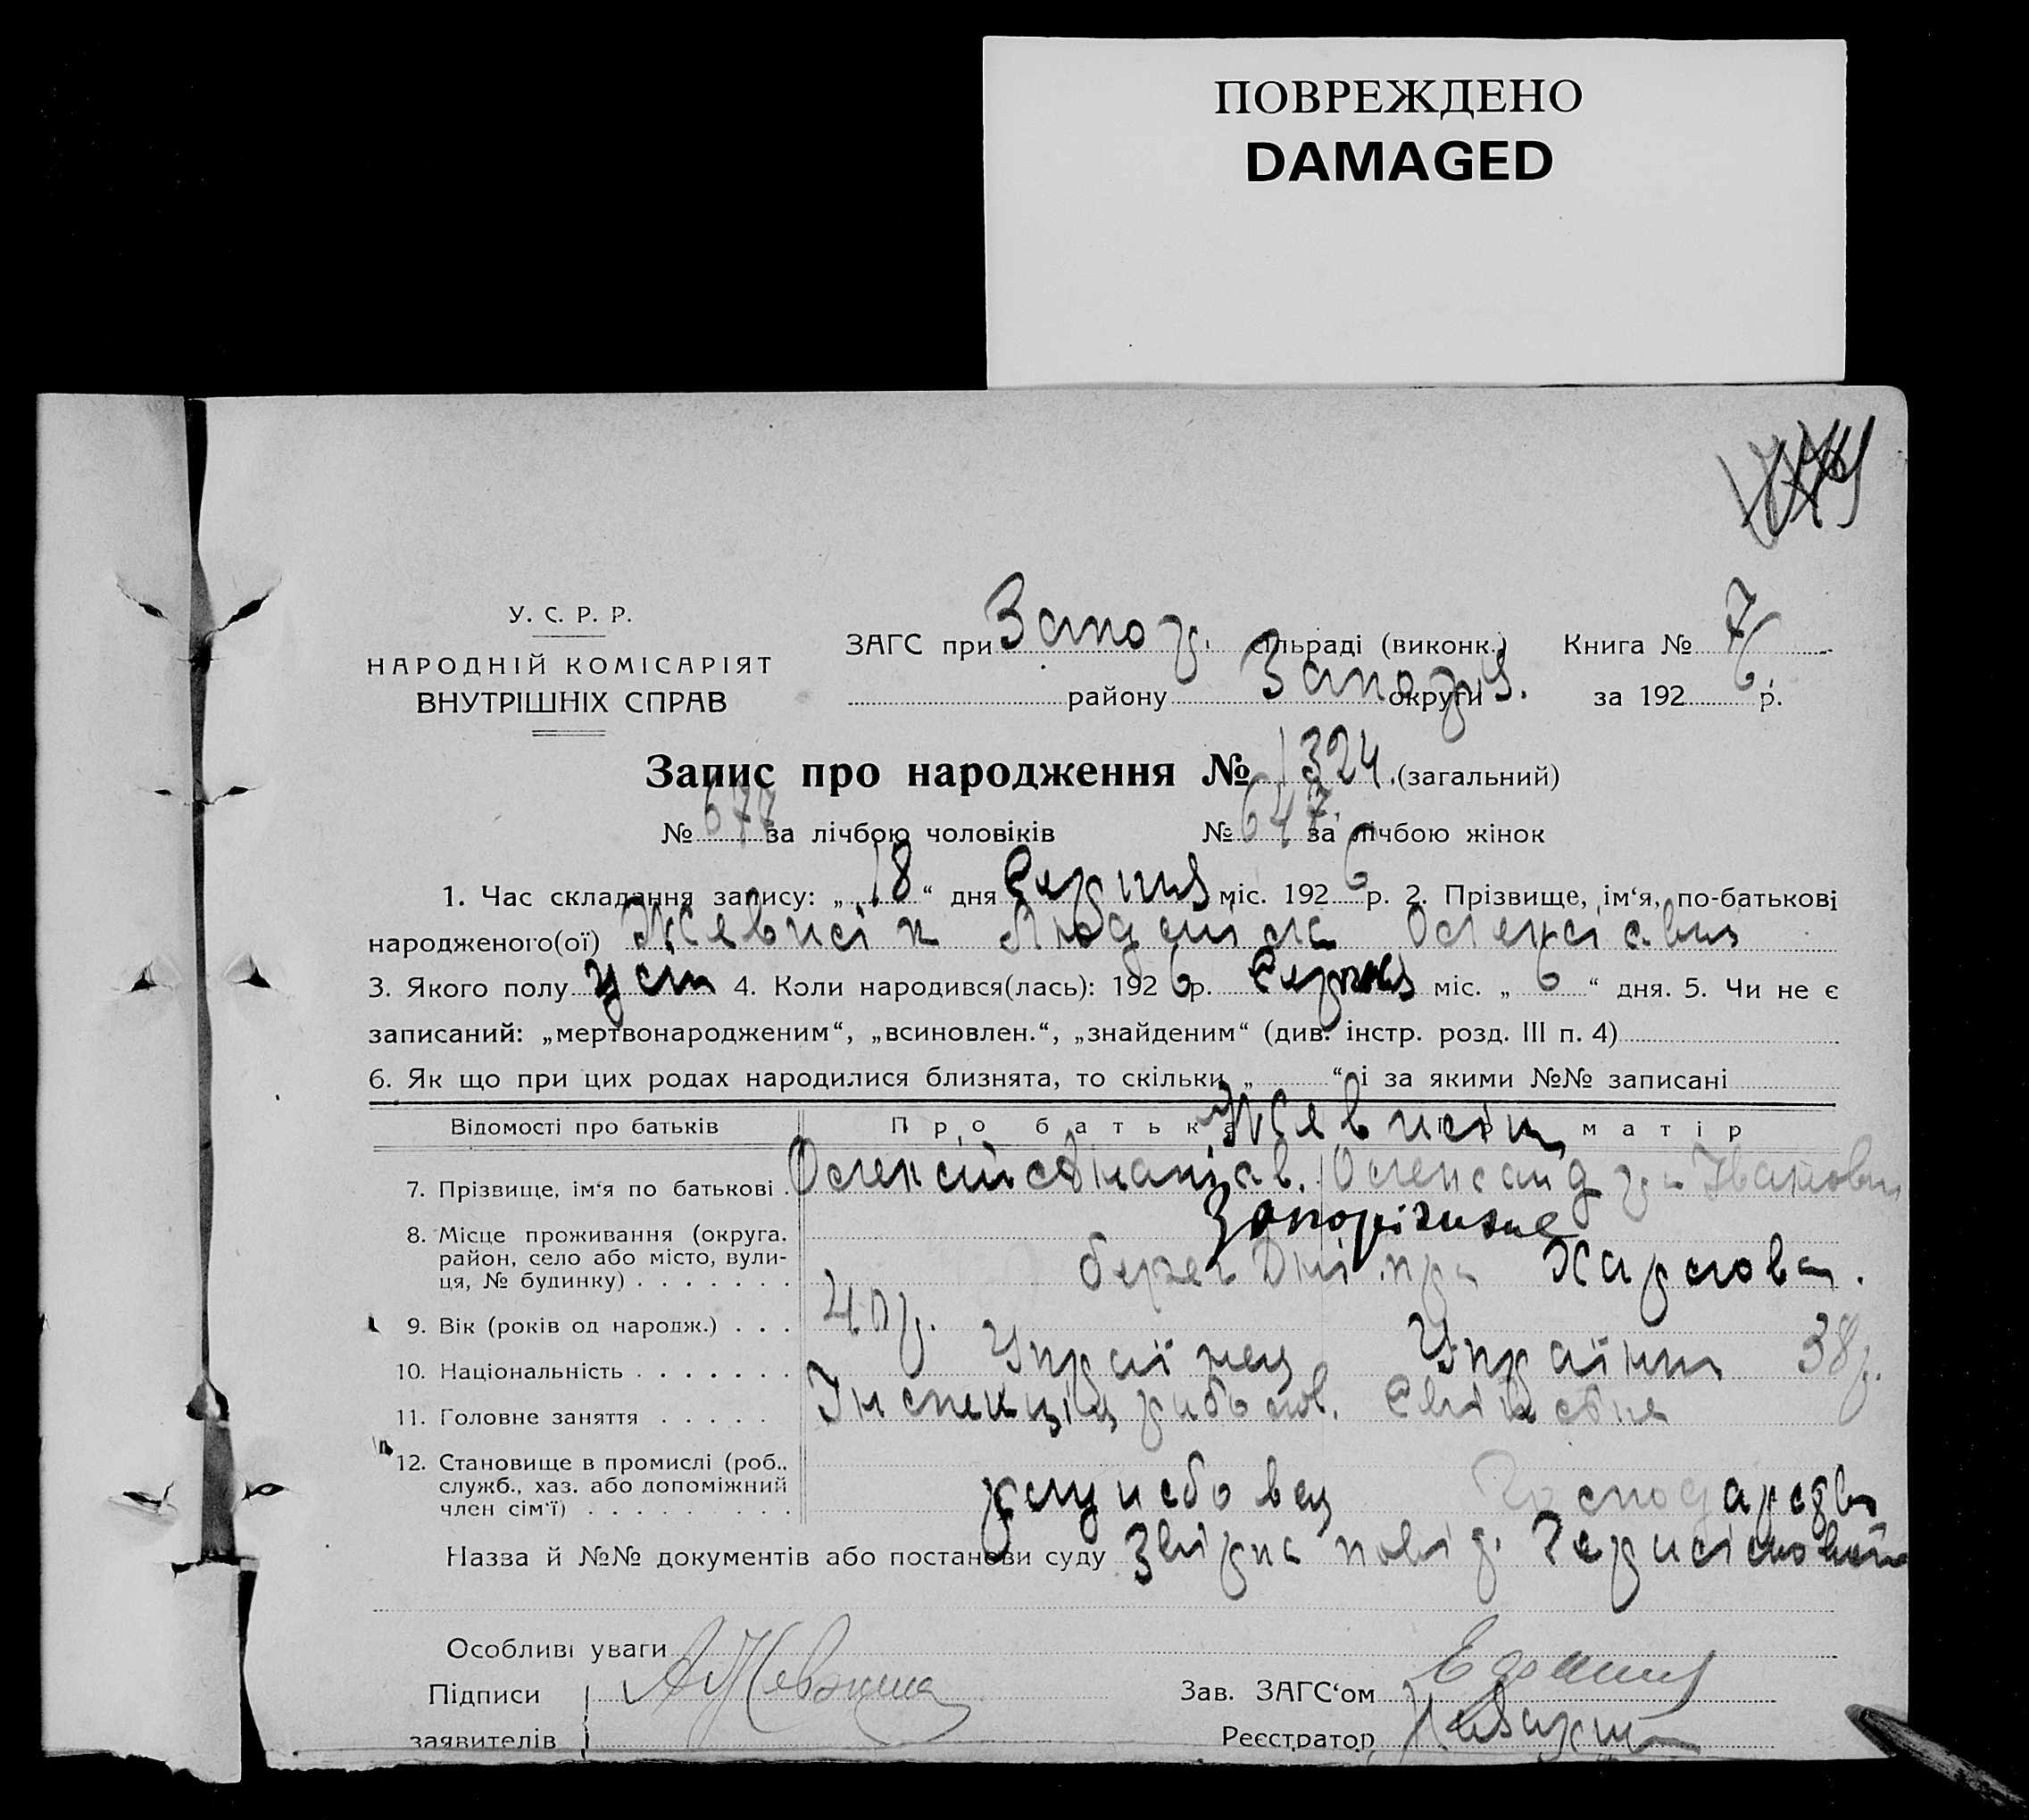 ПОВРЕЖДЕНО
DAMAGED
У. С. Р. Р.
НАРОДНІЙ КОМІСАРІЯТ
ВНУТРІШНІХ СПРАВ
ЗАГС при Запор. сільраді (виконк.) Книга № 7
району Запор округи за 1926 р.
Запис про народження № 1324 (загальний)
№ 677 за лічбою чоловіків № 647 за лічбою жінок
1. Час складання запису: „18“ дня Серпня міс. 1926 р. 2. Прізвище, ім‘я, по-батькові
народженого(ої) Людміла Олексієвна
3. Якого полу 4. Коли народився(лась): 1926 р. Серпня міс. „6“ дня. 5. Чи не є
записаний: „мертвонародженим“, „всиновлен.“, „знайденим“ (див. інстр. розд. III п. 4)
6. Як що при цих родах народилися близнята, то скільки „ “ і за якими №№ записані
Відомості про батьків Про батька матір
7. Прізвище, ім‘я по батькові Олексій Олександра Івановна
8. Місце проживання (округа, район, село або місто, вулиця, № будинку) Запоріжжє
берег Дніпра
9. Вік (років од народж.) 40 р. 38 р.
10. Національність Українец Українка
11. Головне заняття Інспекція рибол.
12. Становище в промислі (роб., служб., хаз. або допоміжний член сім‘ї) службовец Господарство
Назва й №№ документів або постанови суду
Особливі уваги
Підписи заявителів
Зав. ЗАГС‘ом
Реєстратор